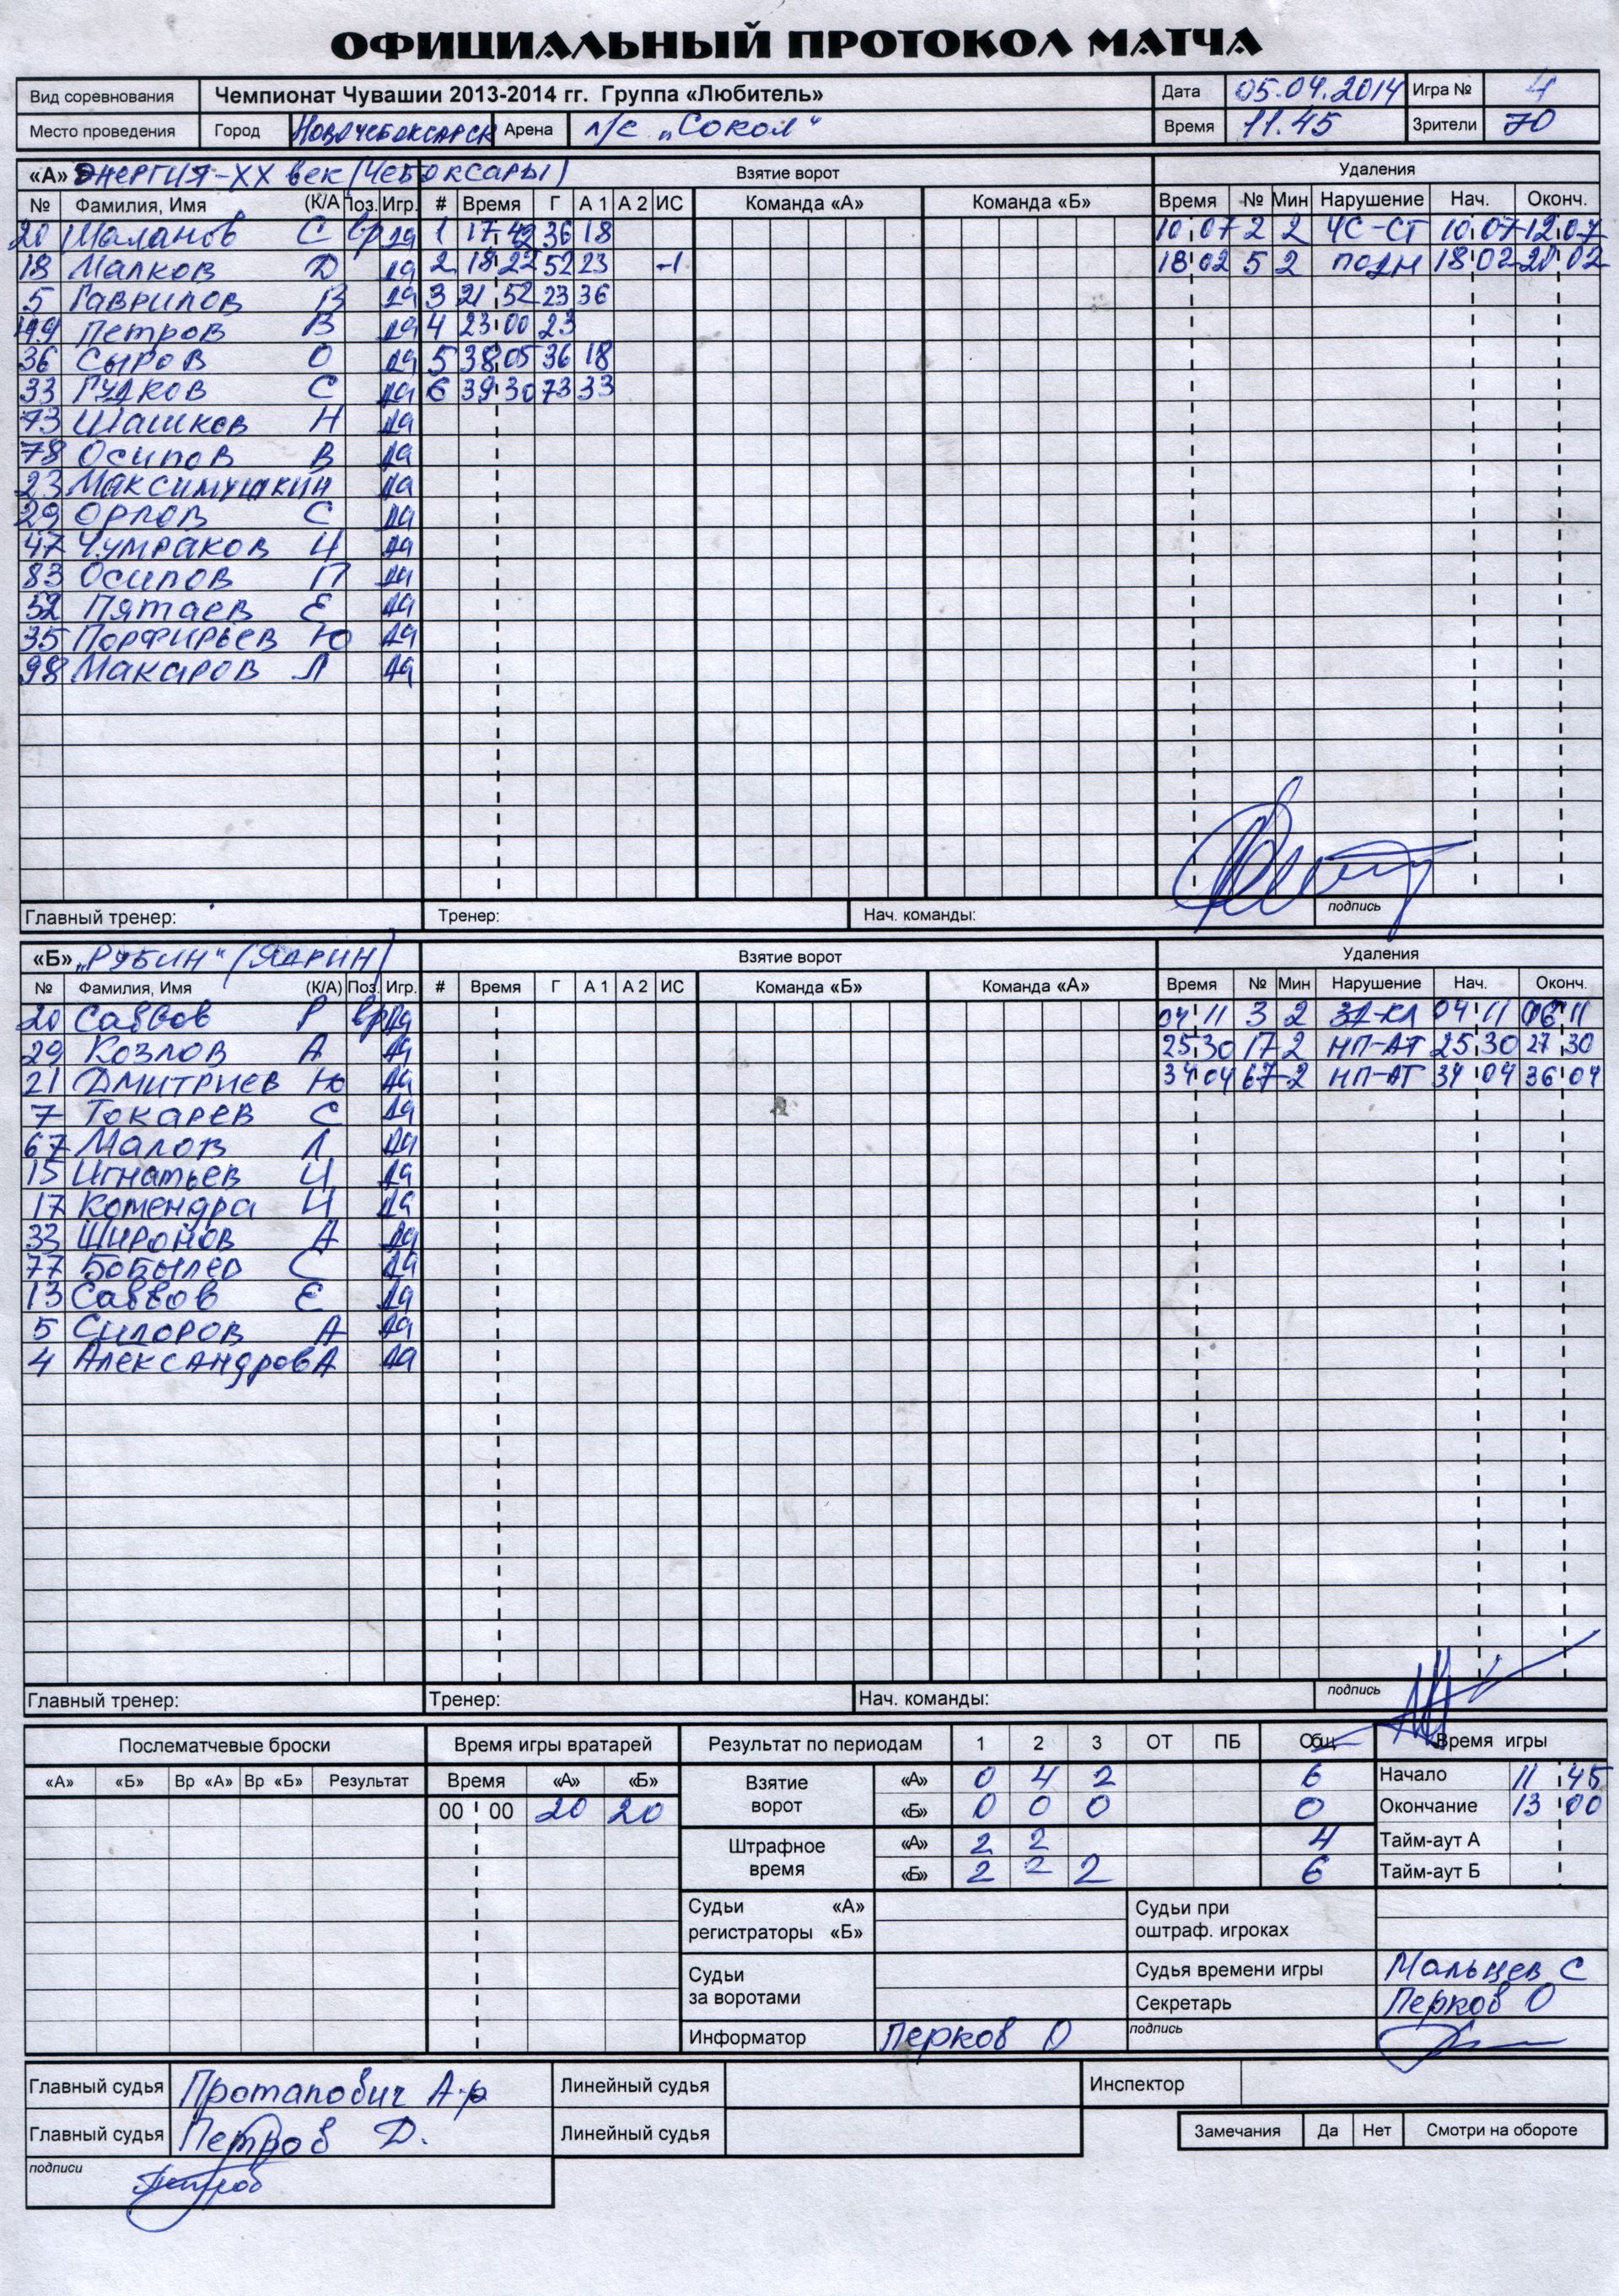 ОФИЦИАЛЬНЫЙ ПРОТОКОЛ МАТЧА
Вид соревнования Чемпионат Чувашии 2013-2014 гг. Группа «Любитель» Дата 05.04.2014 Игра № 4
Место проведения Город Новочебоксарск Арена л/с „Сокол" Время 11.45 Зрители 70
«А» Энергия-XX век (Чебоксары) Взятие ворот Удаления
№ Фамилия, Имя (К/А) Поз. Игр. # Время Г А 1 А 2 ИС Команда «А» Команда «Б» Время № Мин Нарушение Нач. Оконч.
20 Маланов С вр да 1 17 42 36 18 10 07 2 2 ЧС-СТ 10 07 12 07
18 Малков Д да 2 18 22 52 23 -1 18 02 5 2 подн 18 02 20 02
5 Гаврилов В да 3 21 52 23 36
Петров В да 4 23 00 23
36 Сыров О да 5 38 05 36 18
33 Гудков С да 6 39 30 73 33
73 Шашков Н да
78 Осипов В да
23 Максимушкин да
29 Орлов С да
47 Чумраков И да
83 Осипов П да
52 Пятаев Е да
35 Порфирьев Ю да
98 Макаров Л да
Главный тренер: Тренер: Нач. команды: подпись
«Б» „Рубин" (Ядрин) Взятие ворот Удаления
№ Фамилия, Имя (К/А) Поз. Игр. # Время Г А 1 А 2 ИС Команда «Б» Команда «А» Время № Мин Нарушение Нач. Оконч.
20 Саввов Р вр да 04 11 3 2 ЗД-КЛ 04 11 06 11
29 Козлов А да 25 30 17 2 НП-АТ 25 30 27 30
21 Дмитриев Ю да 34 04 67 2 НП-АТ 34 04 36 04
7 Токарев С да
67 Малов Л да
15 Игнатьев И да
17 Комендра И да
33 Широнов А да
77 Бобылев С да
13 Саввов Е да
5 Сидоров А да
4 Александров А да
Главный тренер: Тренер: Нач. команды: подпись
Послематчевые броски Время игры вратарей Результат по периодам 1 2 3 ОТ ПБ Общ. Время игры
«А» «Б» Вр «А» Вр «Б» Результат Время «А» «Б» Взятие ворот «А» 0 4 2 6 Начало 11 45
00 00 20 20 «Б» 0 0 0 0 Окончание 13 00
Штрафное время «А» 2 2 4 Тайм-аут А
«Б» 2 2 2 6 Тайм-аут Б
Судьи регистраторы «А» «Б» Судьи при оштраф. игроках
Судьи за воротами Судья времени игры Мальцев С
Секретарь Перков О
Информатор Перков О подпись
Главный судья Протапович А-р Линейный судья Инспектор
Главный судья Петров Д. Линейный судья Замечания Да Нет Смотри на обороте
подписи